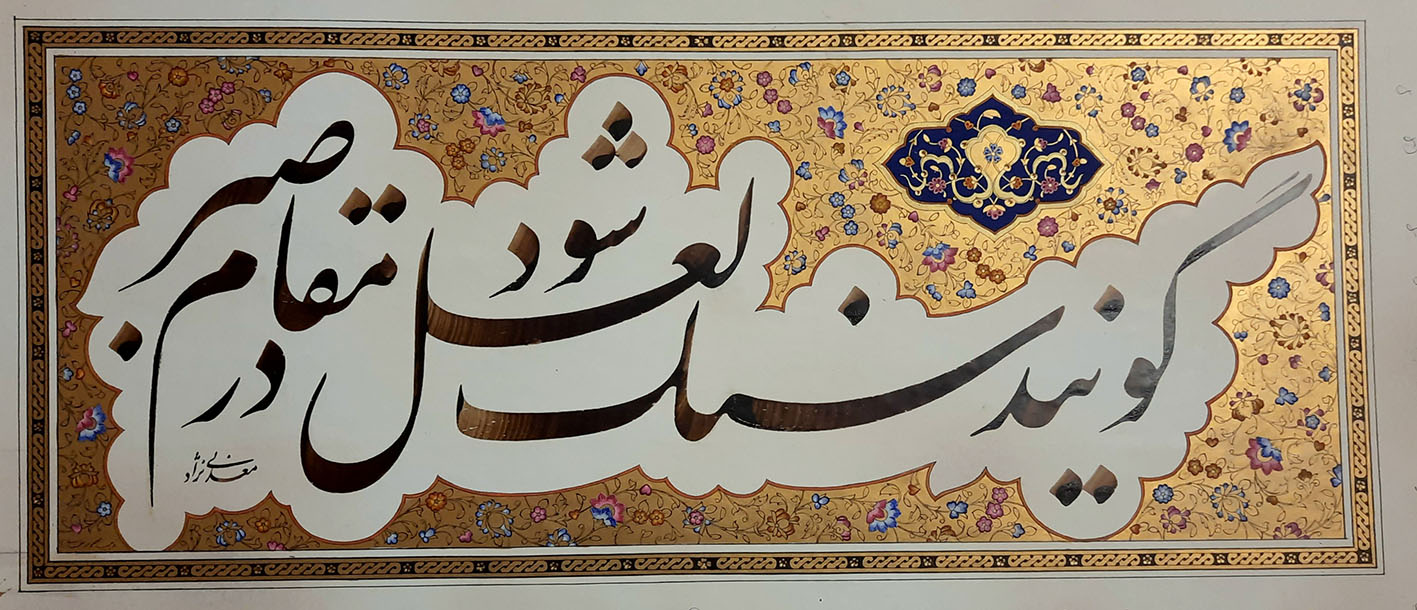 گویند سنگ لعل شود در مقام صبر
معدنی نژاد